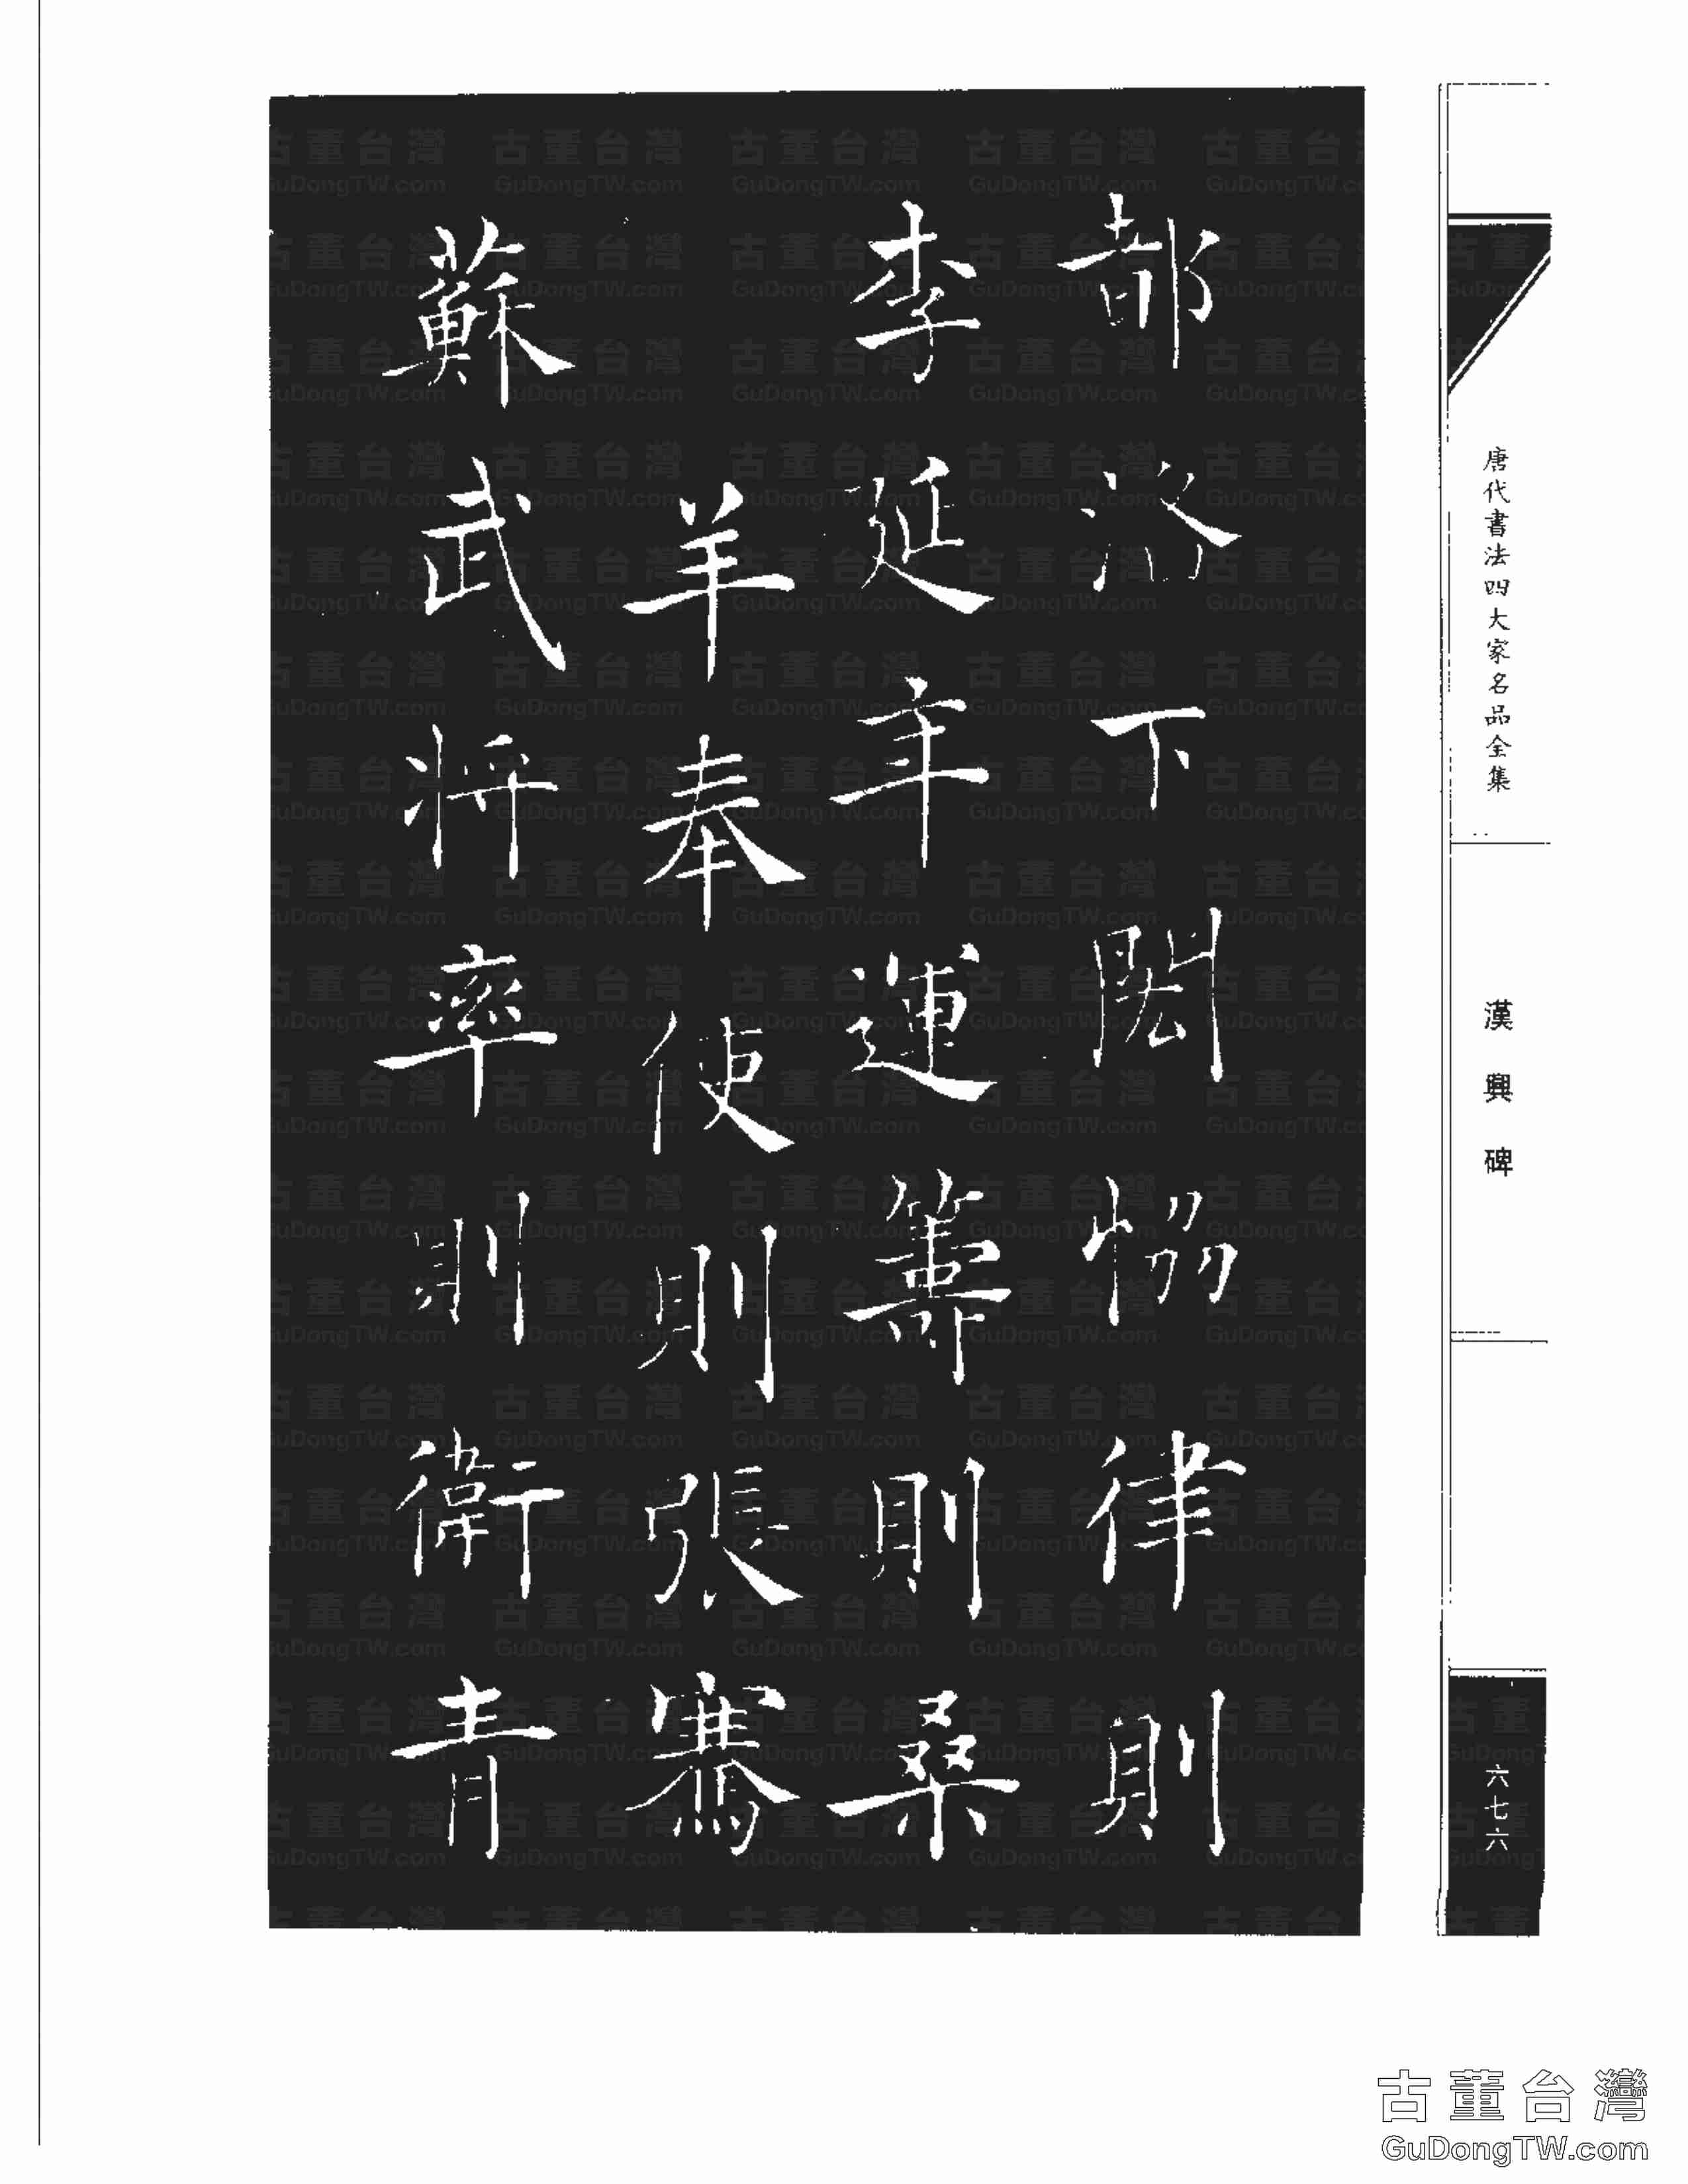 唐代書法四大家名品全集
漢興碑
六七六
都洛下閎恊律則
李延年運籌則桑
羊奉使則張騫
蘇武將率則衛青
古董台灣
GuDongTW.com